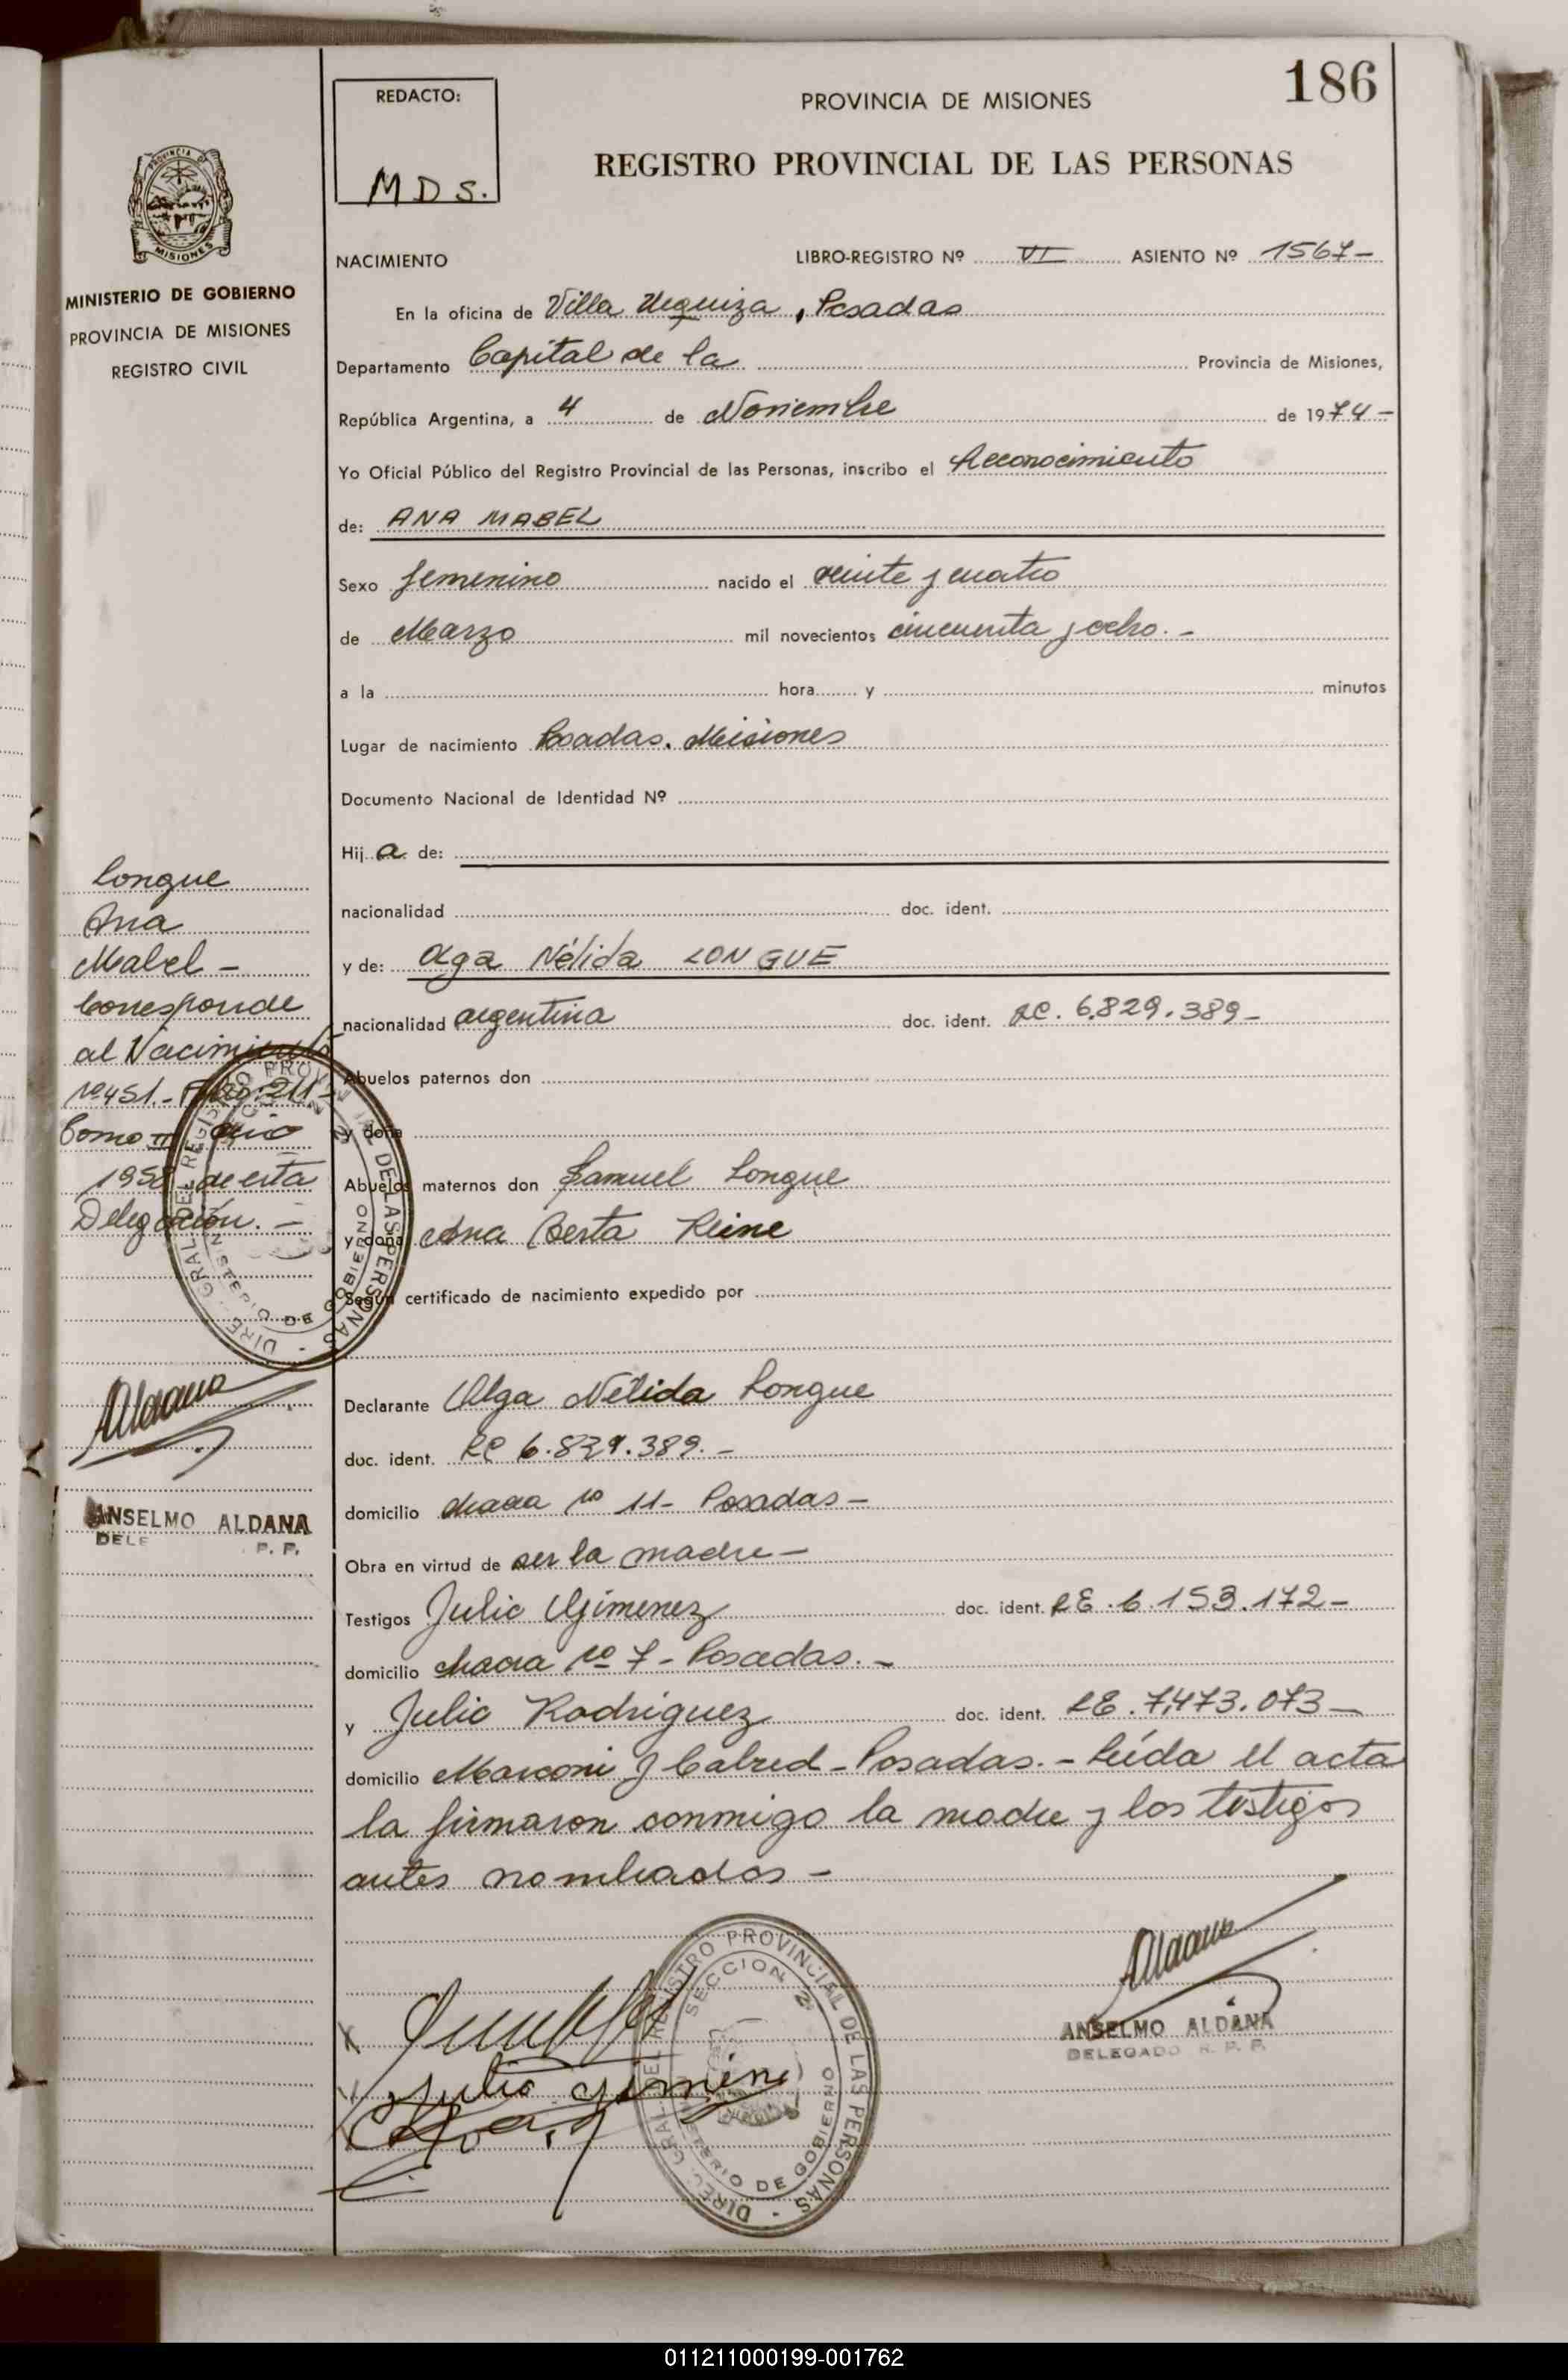 186
REDACTO:
MDS.
PROVINCIA DE MISIONES
REGISTRO PROVINCIAL DE LAS PERSONAS
PROVINCIA DE
MISIONES
MINISTERIO DE GOBIERNO
PROVINCIA DE MISIONES
REGISTRO CIVIL
NACIMIENTO LIBRO-REGISTRO Nº VI ASIENTO Nº 1567-
En la oficina de Villa Urquiza, Posadas
Departamento Capital de la Provincia de Misiones,
República Argentina, a 4 de Noviembre de 1974-
Yo Oficial Público del Registro Provincial de las Personas, inscribo el Reconocimiento
de: ANA MABEL
Sexo femenino nacido el veinte y cuatro
de Marzo mil novecientos cincuenta y ocho.-
a la hora y minutos
Lugar de nacimiento Posadas. Misiones
Documento Nacional de Identidad Nº
Hij a de:
nacionalidad doc. ident.
y de: Olga Nélida LONGUE
nacionalidad argentina doc. ident. LC. 6.829.389-
Abuelos paternos don
y doña
Abuelos maternos don Samuel Longue
y doña Ana Berta Reine
Según certificado de nacimiento expedido por
Declarante Olga Nélida Longue
doc. ident. LC 6.829.389.-
domicilio chacra nº 11- Posadas-
Obra en virtud de ser la madre-
Testigos Julio Gimenez doc. ident. LE. 6.153.172-
domicilio chacra nº 7- Posadas.-
y Julio Rodriguez doc. ident. LE. 7.473.073-
domicilio Marconi y Cabred- Posadas.- Leída el acta
la firmaron conmigo la madre y los testigos
antes nombrados-
Longue
Ana
Mabel-
Corresponde
al Nacimiento
nº 451.- Folio 211-
Tomo III año
1958 de esta
Delegación.-
DIREC. GRAL. DEL REGISTRO PROVINCIAL DE LAS PERSONAS
MINISTERIO DE GOBIERNO
Aldana
ANSELMO ALDANA
DELE R. P. P.
Aldana
ANSELMO ALDANA
DELEGADO R. P. P.
Julio Gimenez
DIREC. GRAL. DEL REGISTRO PROVINCIAL DE LAS PERSONAS
SECCION 2
MINISTERIO DE GOBIERNO
011211000199-001762